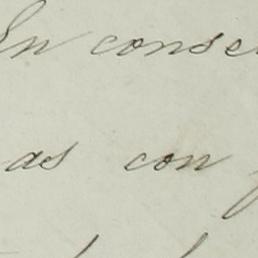 En conse
as con